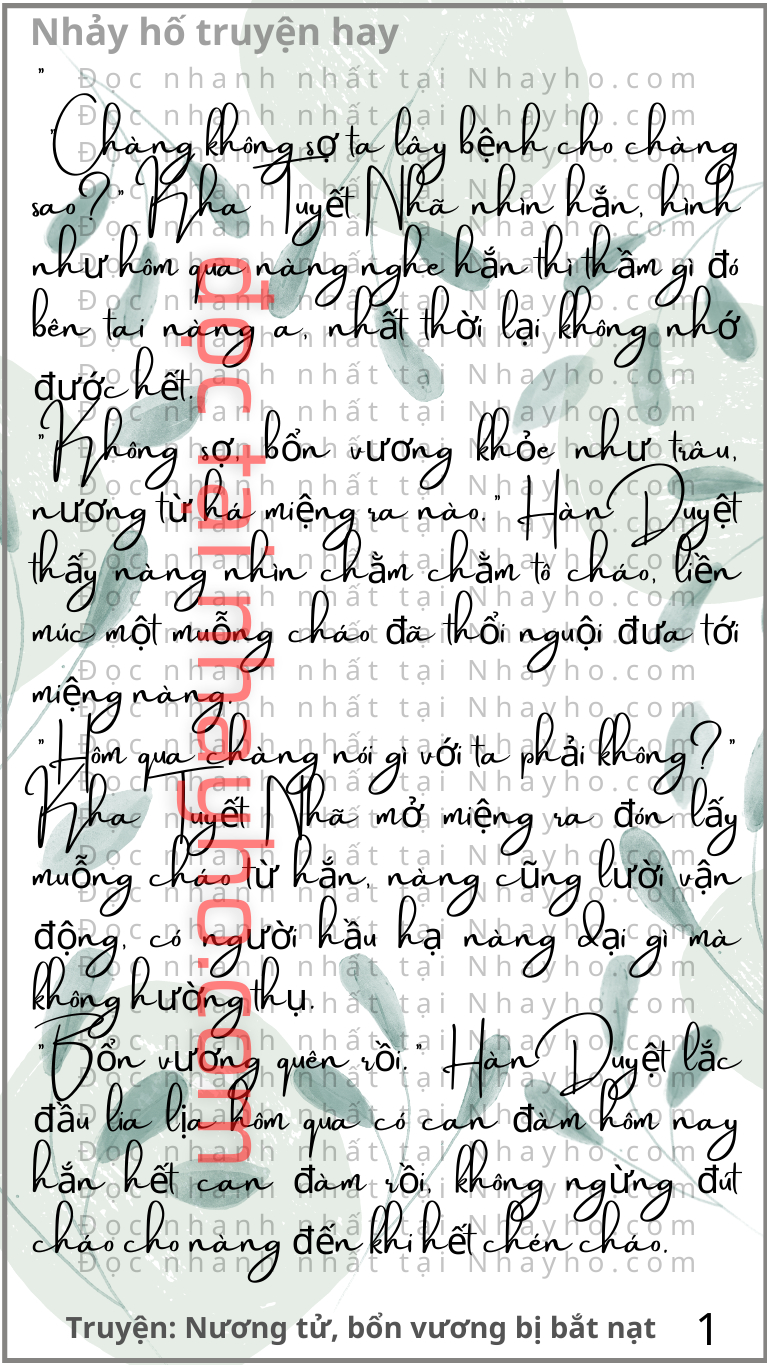 Nhảy hố truyện hay
"
"Chàng không sợ ta lây bệnh cho chàng
sao?" Kha Tuyết Nhã nhìn hắn, hình
như hôm qua nàng nghe hắn thì thầm gì đó
bên tai nàng a, nhất thời lại không nhớ
được hết.
"Không sợ, bổn vương khỏe như trâu,
nương tử há miệng ra nào." Hàn Duyệt
thấy nàng nhìn chằm chằm tô cháo, liền
múc một muỗng cháo đã thổi nguội đưa tới
miệng nàng.
"Hôm qua chàng nói gì với ta phải không?"
Kha Tuyết Nhã mở miệng ra đón lấy
muỗng cháo từ hắn, nàng cũng lười vận
động, có người hầu hạ nàng dại gì mà
không hường thụ.
"Bổn vương quên rồi." Hàn Duyệt lắc
đầu lia lịa hôm qua có can đàm hôm nay
hắn hết can đàm rồi, không ngừng đút
cháo cho nàng đến khi hết chén cháo.
đọc tại nhayho.com
Đọc nhanh nhất tại Nhayho.com
Truyện: Nương tử, bổn vương bị bắt nạt 1